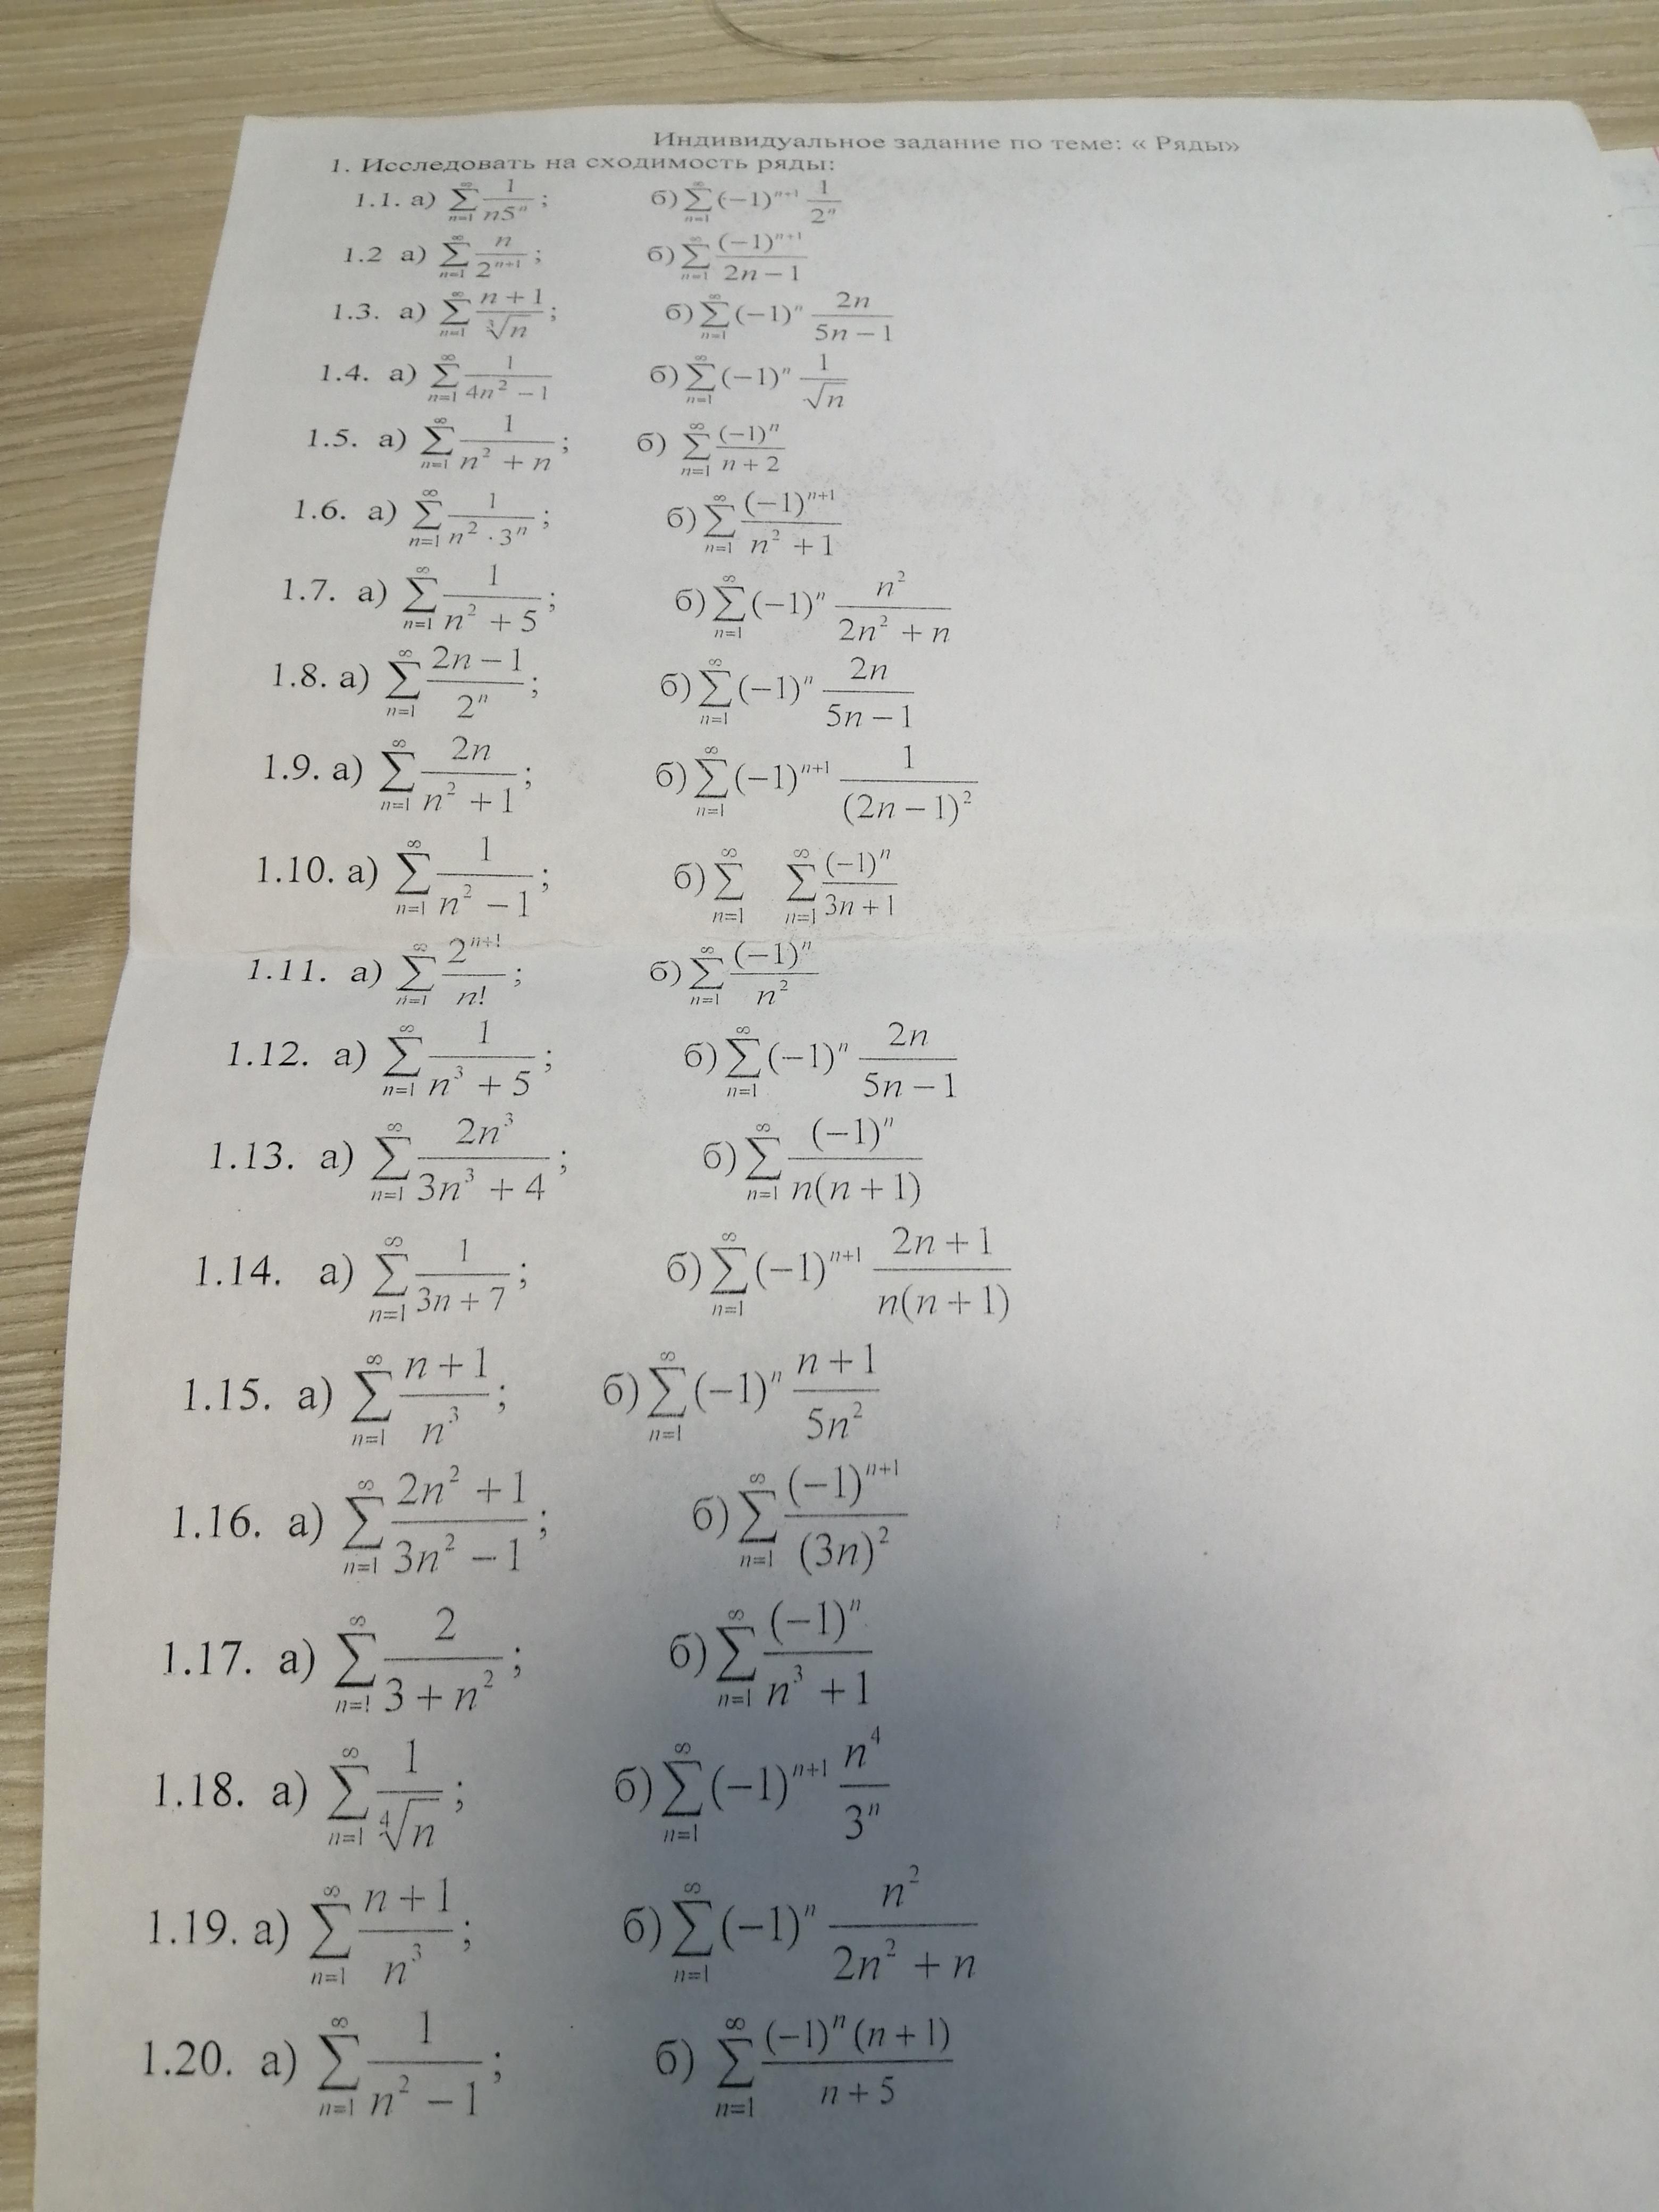 Индивидуальное задание по теме: « Ряды»
1. Исследовать на сходимость ряды:
1.1. а) $\sum_{n=1}^{\infty} \frac{1}{n5^n}$; б) $\sum_{n=1}^{\infty} (-1)^{n+1} \frac{1}{2^n}$
1.2 а) $\sum_{n=1}^{\infty} \frac{n}{2^{n+1}}$; б) $\sum_{n=1}^{\infty} \frac{(-1)^{n+1}}{2n-1}$
1.3. а) $\sum_{n=1}^{\infty} \frac{n+1}{\sqrt[3]{n}}$; б) $\sum_{n=1}^{\infty} (-1)^n \frac{2n}{5n-1}$
1.4. а) $\sum_{n=1}^{\infty} \frac{1}{4n^2-1}$ б) $\sum_{n=1}^{\infty} (-1)^n \frac{1}{\sqrt{n}}$
1.5. а) $\sum_{n=1}^{\infty} \frac{1}{n^2+n}$; б) $\sum_{n=1}^{\infty} \frac{(-1)^n}{n+2}$
1.6. а) $\sum_{n=1}^{\infty} \frac{1}{n^2 \cdot 3^n}$; б) $\sum_{n=1}^{\infty} \frac{(-1)^{n+1}}{n^2+1}$
1.7. а) $\sum_{n=1}^{\infty} \frac{1}{n^2+5}$; б) $\sum_{n=1}^{\infty} (-1)^n \frac{n^2}{2n^2+n}$
1.8. а) $\sum_{n=1}^{\infty} \frac{2n-1}{2^n}$; б) $\sum_{n=1}^{\infty} (-1)^n \frac{2n}{5n-1}$
1.9. а) $\sum_{n=1}^{\infty} \frac{2n}{n^2+1}$; б) $\sum_{n=1}^{\infty} (-1)^{n+1} \frac{1}{(2n-1)^2}$
1.10. а) $\sum_{n=1}^{\infty} \frac{1}{n^2-1}$; б) $\sum_{n=1}^{\infty} \sum_{n=1}^{\infty} \frac{(-1)^n}{3n+1}$
1.11. а) $\sum_{n=1}^{\infty} \frac{2^{n+1}}{n!}$; б) $\sum_{n=1}^{\infty} \frac{(-1)^n}{n^2}$
1.12. а) $\sum_{n=1}^{\infty} \frac{1}{n^3+5}$; б) $\sum_{n=1}^{\infty} (-1)^n \frac{2n}{5n-1}$
1.13. а) $\sum_{n=1}^{\infty} \frac{2n^3}{3n^3+4}$; б) $\sum_{n=1}^{\infty} \frac{(-1)^n}{n(n+1)}$
1.14. а) $\sum_{n=1}^{\infty} \frac{1}{3n+7}$; б) $\sum_{n=1}^{\infty} (-1)^{n+1} \frac{2n+1}{n(n+1)}$
1.15. а) $\sum_{n=1}^{\infty} \frac{n+1}{n^3}$; б) $\sum_{n=1}^{\infty} (-1)^n \frac{n+1}{5n^2}$
1.16. а) $\sum_{n=1}^{\infty} \frac{2n^2+1}{3n^2-1}$; б) $\sum_{n=1}^{\infty} \frac{(-1)^{n+1}}{(3n)^2}$
1.17. а) $\sum_{n=1}^{\infty} \frac{2}{3+n^2}$; б) $\sum_{n=1}^{\infty} \frac{(-1)^n}{n^3+1}$
1.18. а) $\sum_{n=1}^{\infty} \frac{1}{\sqrt[4]{n}}$; б) $\sum_{n=1}^{\infty} (-1)^{n+1} \frac{n^4}{3^n}$
1.19. а) $\sum_{n=1}^{\infty} \frac{n+1}{n^3}$; б) $\sum_{n=1}^{\infty} (-1)^n \frac{n^2}{2n^2+n}$
1.20. а) $\sum_{n=1}^{\infty} \frac{1}{n^2-1}$; б) $\sum_{n=1}^{\infty} \frac{(-1)^n(n+1)}{n+5}$